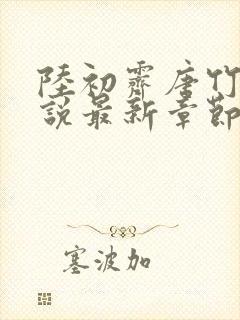 陸初霽唐竹
說最新章節
塞波加